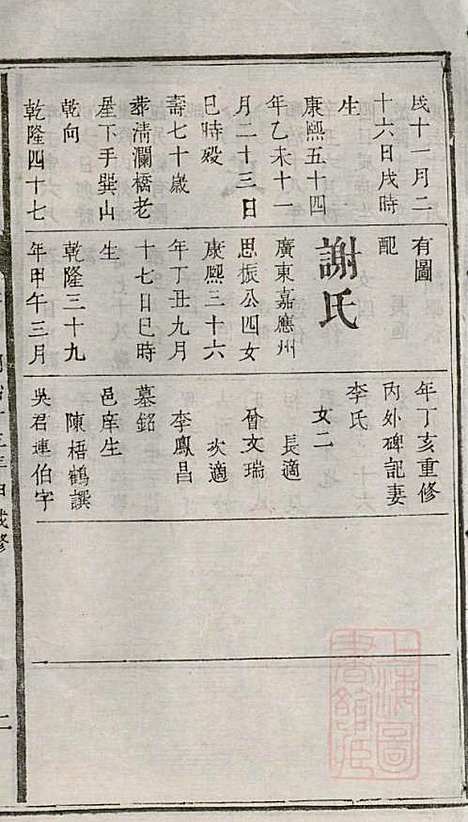 戌十一月二
十六日戌時
生
康熙五十四
年乙未十一
月二十三日
巳時歿
壽七十歲
葬清瀾橋老
屋下手巽山
乾向
乾隆四十七
有圖
配
謝氏
廣東嘉應州
思振公四女
康熙三十六
年丁丑九月
十七日巳時
生
乾隆三十九
年甲午三月
年丁亥重修
內外碑記妻
李氏
女二
長適
曾文瑞
次適
李鳳昌
墓銘
邑庠生
陳梧鶴譔
吳君連伯字
上海圖
書館藏